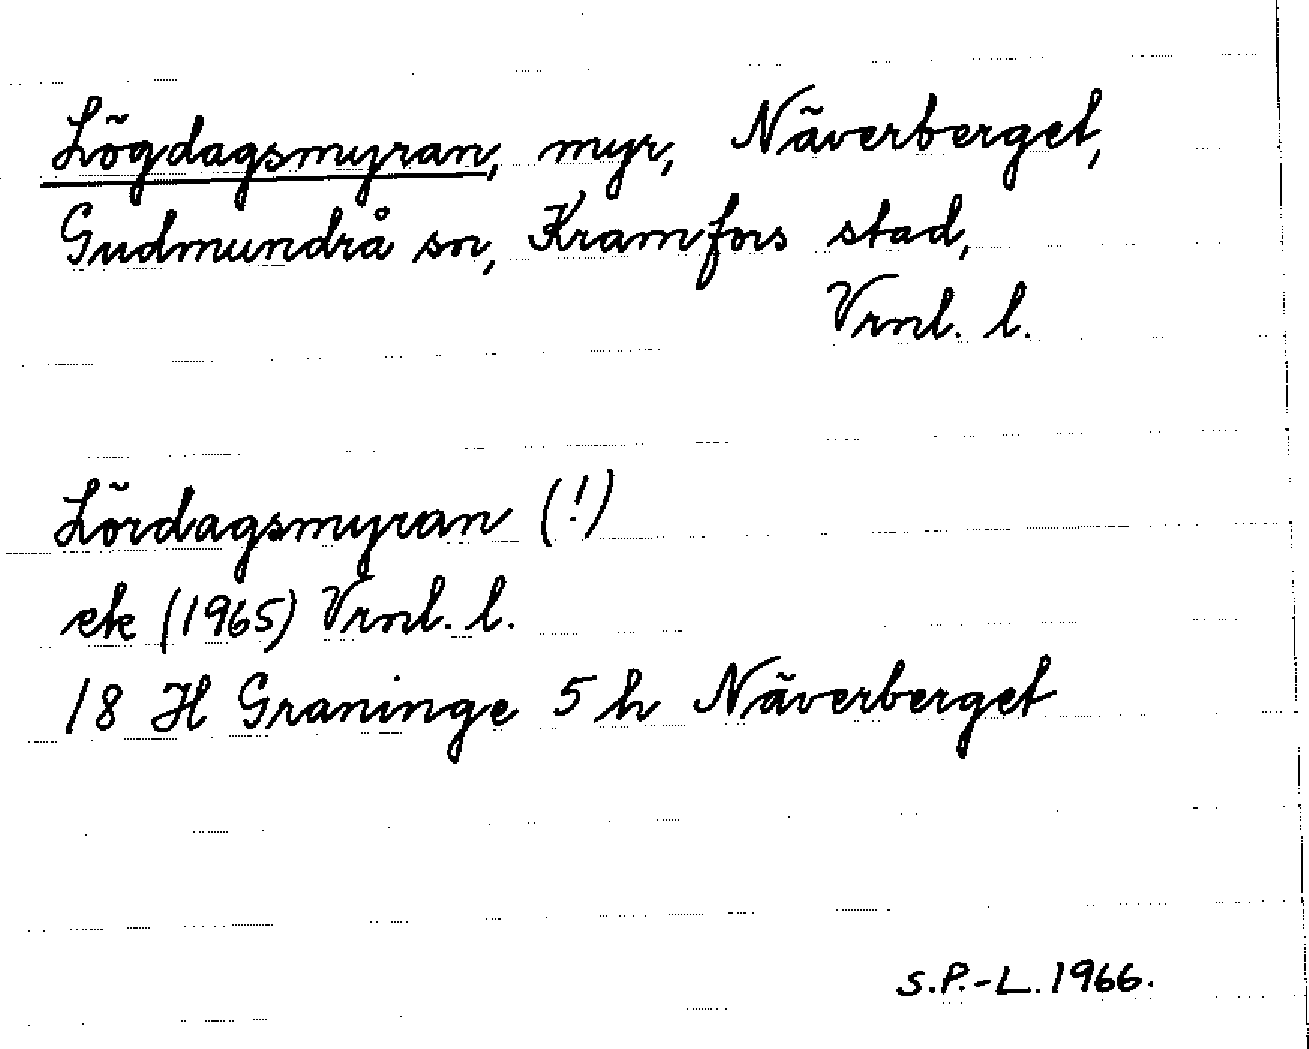 Lögdagsmyran, myr, Näverberget,
Gudmundrå sn, Kramfors stad,
Vrnl. l.
Lördagsmyran (!)
ek (1965) Vrnl. l.
18 H Graninge 5 h Näverberget
S.P.-L. 1966.